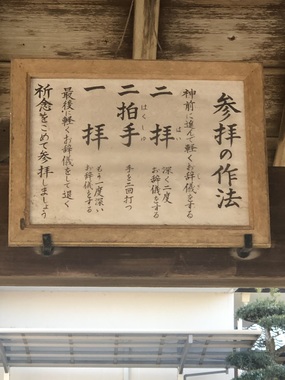 参拝の作法
神前に進んで軽くお辞儀をする
二拝
はい
深く二度
お辞儀をする
二拍手
はくしゅ
手を二回打つ
一拝
もう一度深い
お辞儀をする
最後に軽くお辞儀をして退く
祈念をこめて参拝しましょう